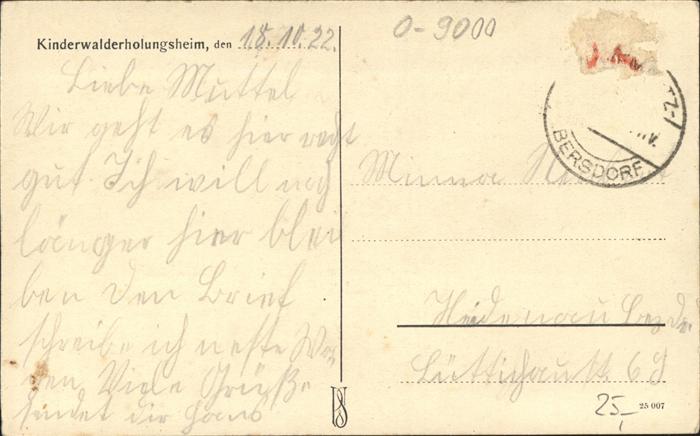 Kinderwalderholungsheim, den 18.10.22.
Liebe Muttel
Wir geht es hier recht
gut. Ich will noch
länger hier blei
ben Den Brief
schreibe ich neßte Wo
chen Viele Grüße
sendet dir Hans
0-9000
TZ-
BERSDORF
Minna
Heidenau Bez
Lüttichaustr. 6
25,-
25 007